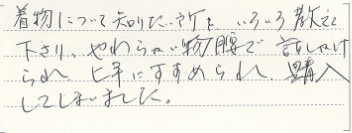 着物について知りたい所を いろいろ教えて
下さり、やわらかい物腰で 話しかけ
られ 上手にすすめられ、購入
してしまいました。